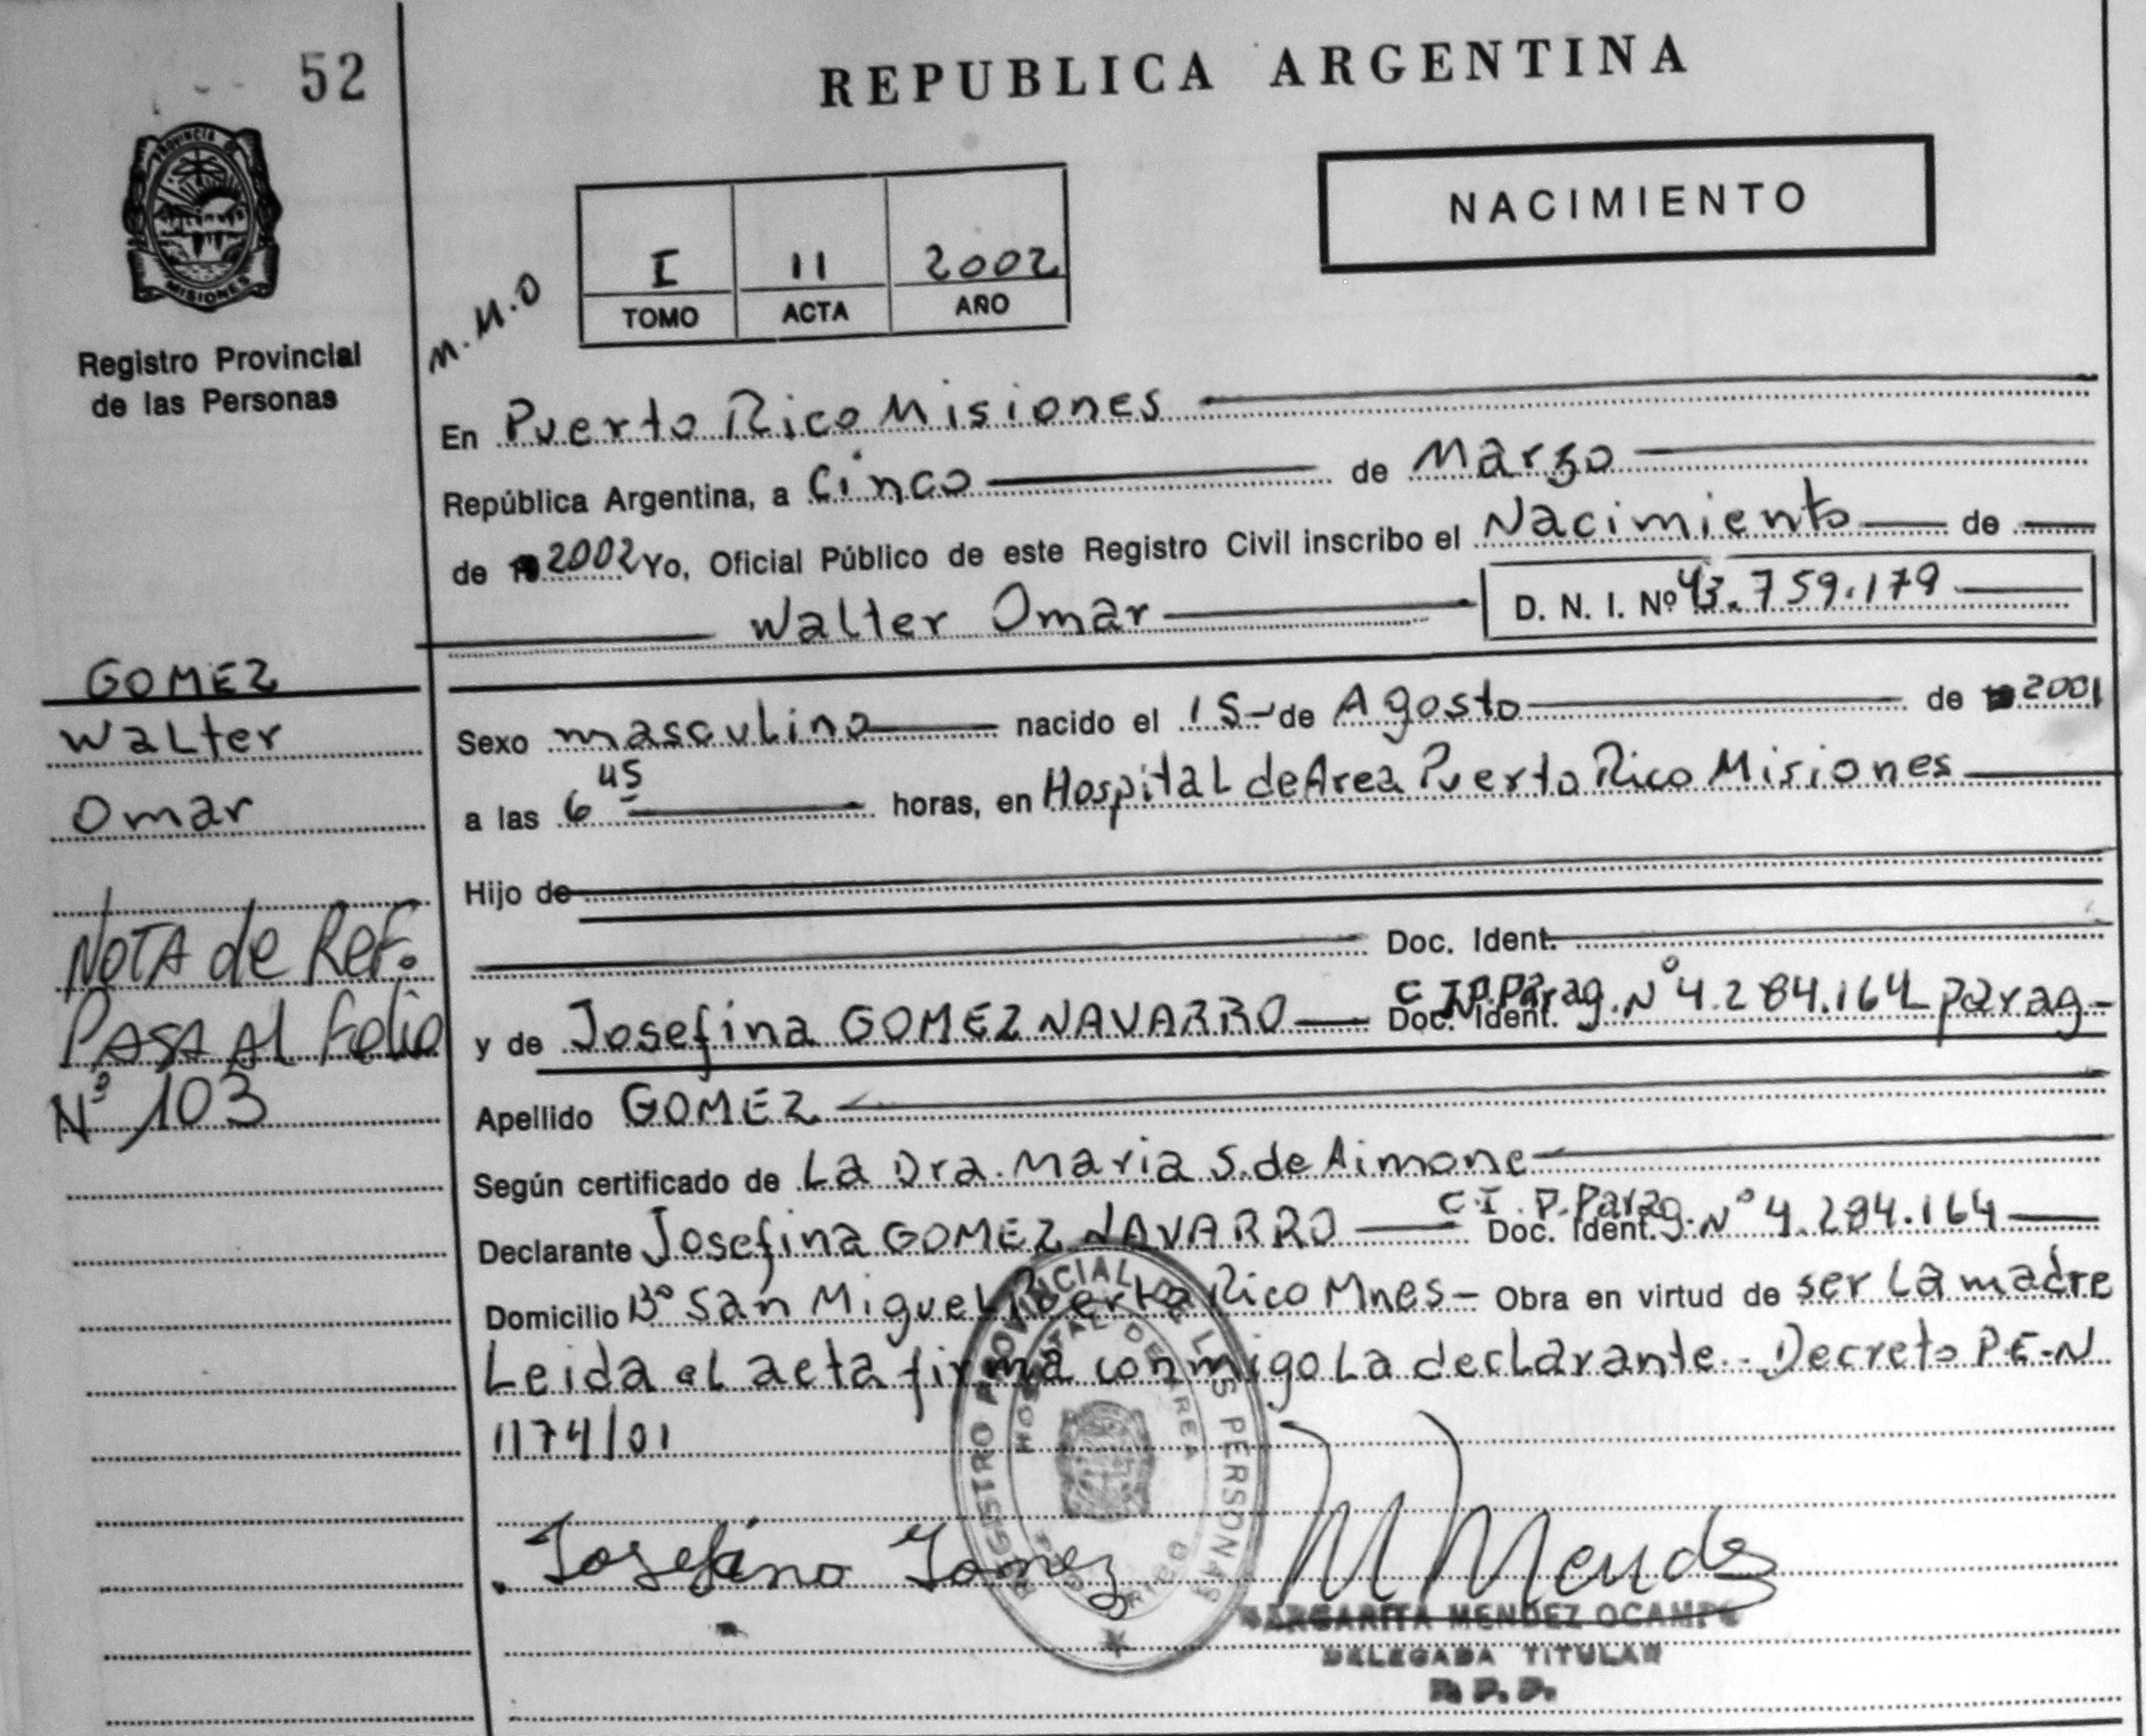 52
REPUBLICA ARGENTINA
PROVINCIA DE
MISIONES
Registro Provincial
de las Personas
NACIMIENTO
I 11 2002
TOMO ACTA AÑO
M.M.O
En Puerto Rico Misiones
República Argentina, a Cinco de Marzo
de 2002 Yo, Oficial Público de este Registro Civil inscribo el Nacimiento de
Walter Omar D. N. I. Nº 43.759.179
GOMEZ
Walter
Omar
Sexo masculino nacido el 15 de Agosto de 2001
a las 6 45 horas, en Hospital de Area Puerto Rico Misiones
Hijo de
Doc. Ident.
y de Josefina GOMEZ NAVARRO Doc. Ident. Parag. Nº 4.284.164 parag-
Apellido GOMEZ
Según certificado de La Dra. Maria S. de Aimone
Declarante Josefina GOMEZ NAVARRO Doc. Ident. C.I.P. Parag. Nº 4.284.164
Domicilio Bº San Miguel Puerto Rico Mnes- Obra en virtud de ser La madre
Leida el acta firma conmigo La declarante.- Decreto P.E-N
1174/01
NOTA de Ref.
PASA Al Folio
Nº 103
REGISTRO PROVINCIAL DE LAS PERSONAS
HOSPITAL DE AREA
Josefina Gomez
M Mendez
MARGARITA MENDEZ OCAMPO
DELEGADA TITULAR
R.P.P.